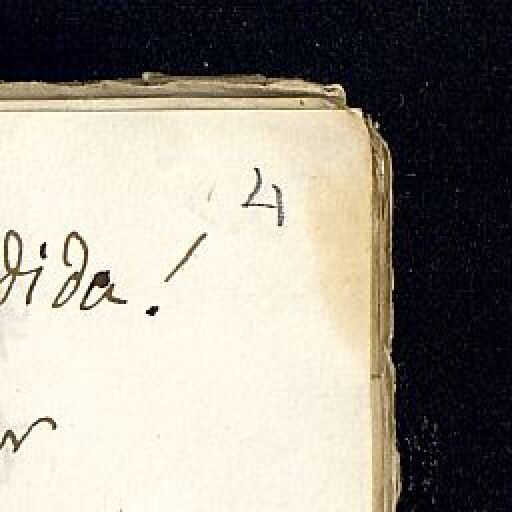 4
dida!